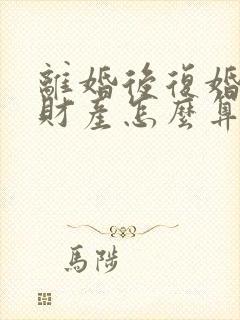 離婚後復婚
財產怎麼算
馬陟